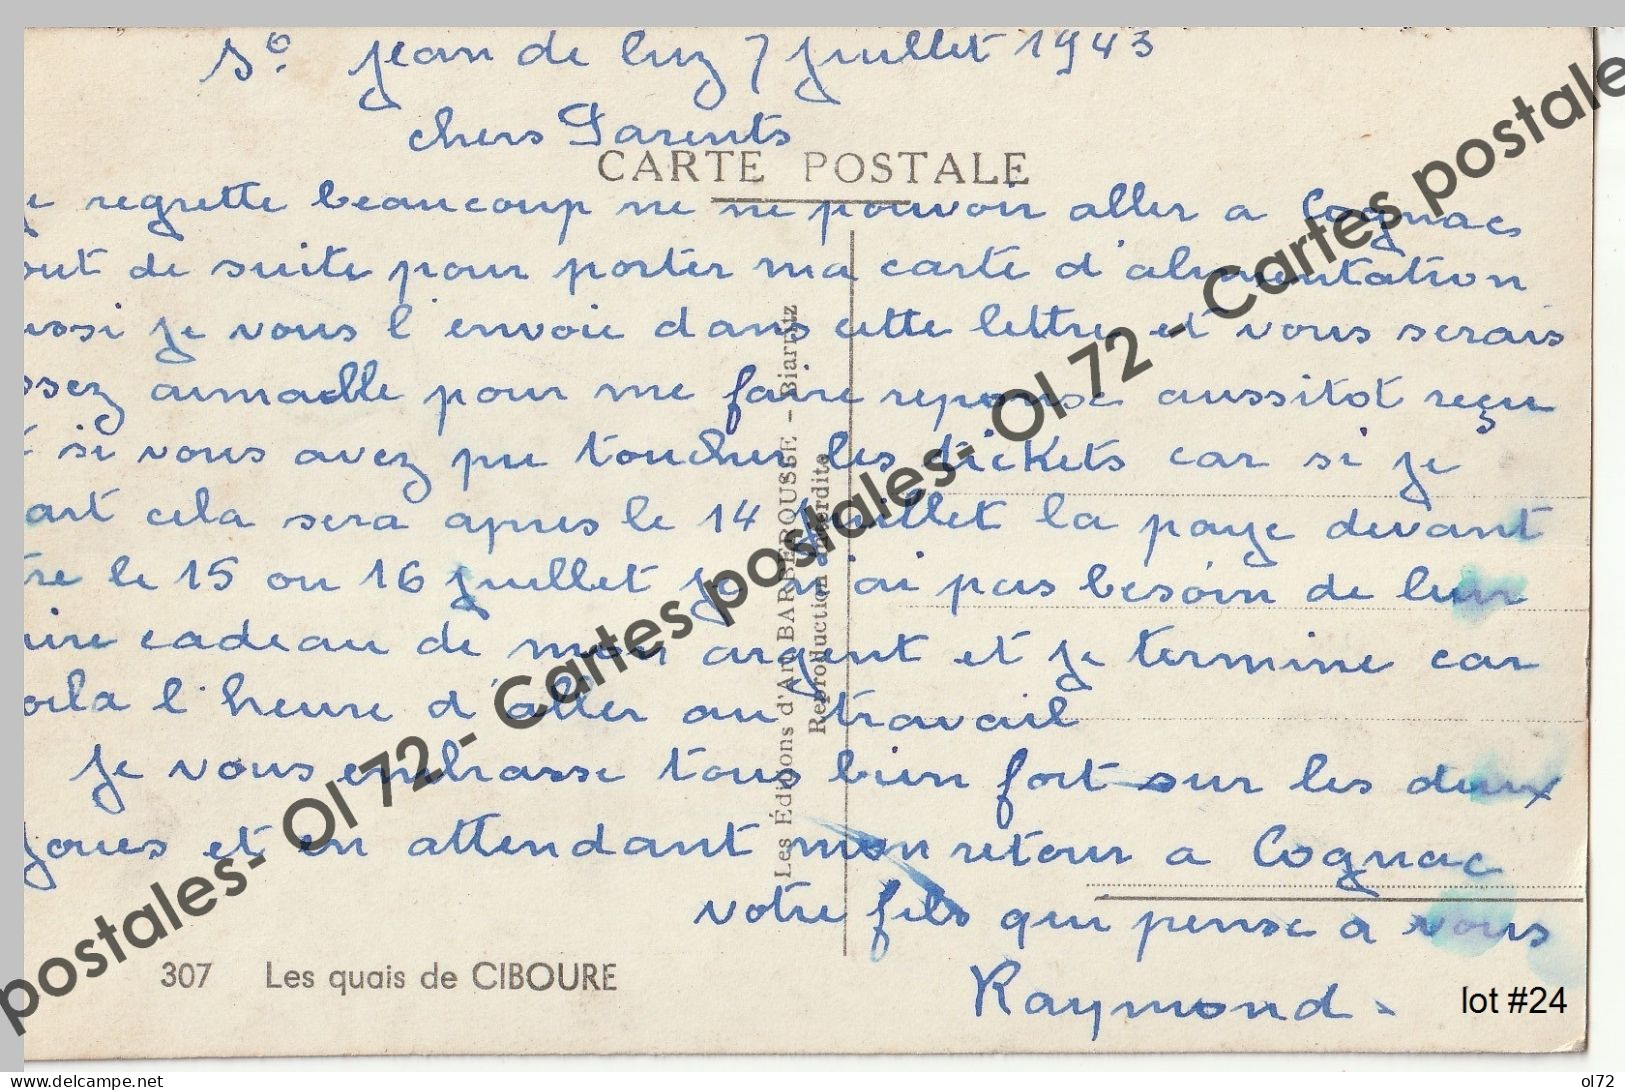 St jean de luz 7 juillet 1943
chers Parents
CARTE POSTALE
je regrette beaucoup ne ne pouvoir aller a Cognac
out de suite pour porter ma carte d'alimentation
ussi je vous l'envoie dans cette lettre et vous serais
ssez aimable pour me faire reponse aussitot reçu
t si vous avez pu toucher les tickets car si je
art cela sera apres le 14 juillet la paye devant
re le 15 ou 16 juillet je n'ai pas besoin de leur
ire cadeau de mon argent et je termine car
oila l'heure d'aller au travail
je vous embrasse tous bien fort sur les deux
joues et en attendant mon retour a Cognac
votre fils qui pense a vous
Raymond.
Les Éditions d'Art BARBEROUSSE - Biarritz
Reproduction interdite
307 Les quais de CIBOURE
lot #24
postales- Ol 72 - Cartes postales- Ol 72 - Cartes postale
www.delcampe.net
ol72